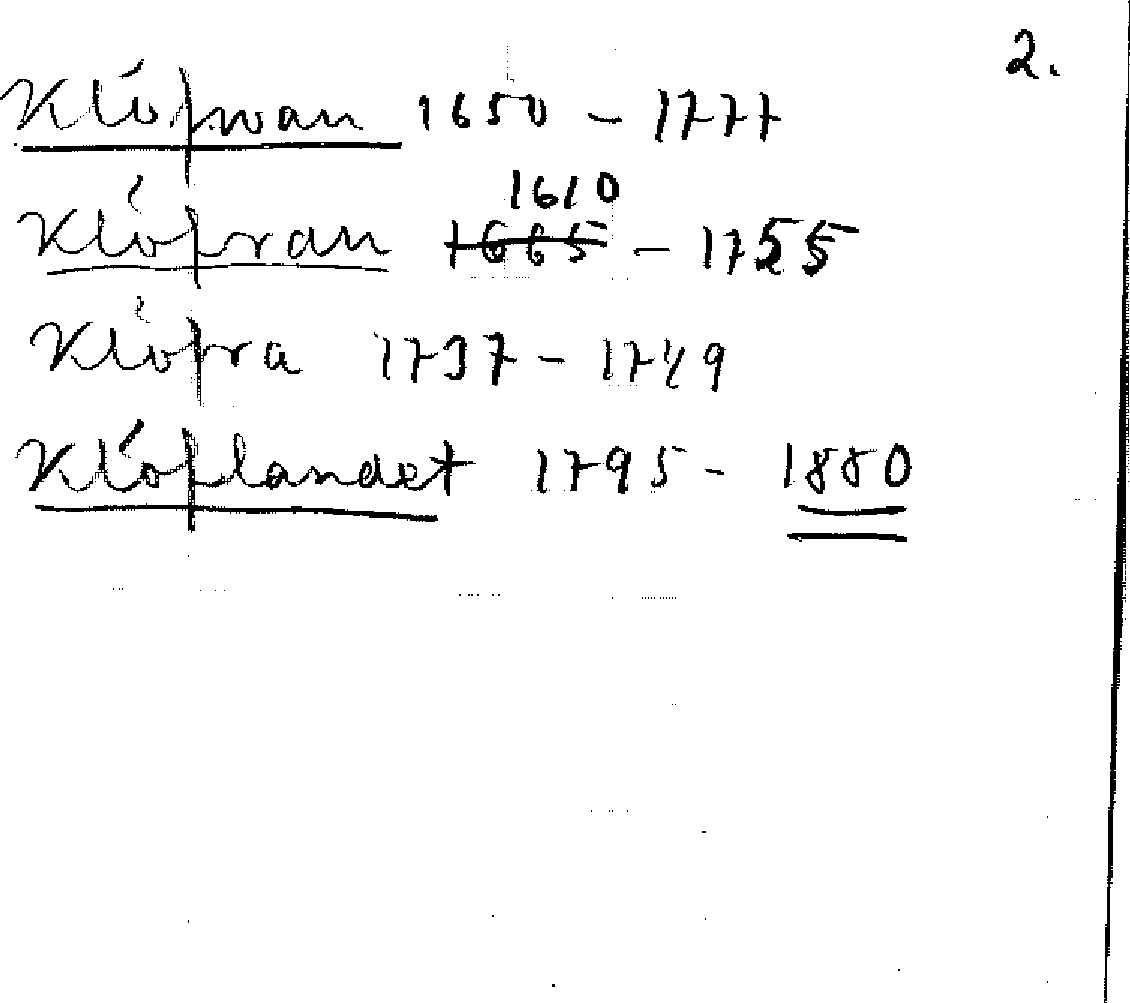 2.
Klófwan 1650 - 1777
1610
Klófran 1665 - 1755
Klófra 1737 - 1749
Klóflandet 1795 - 1880